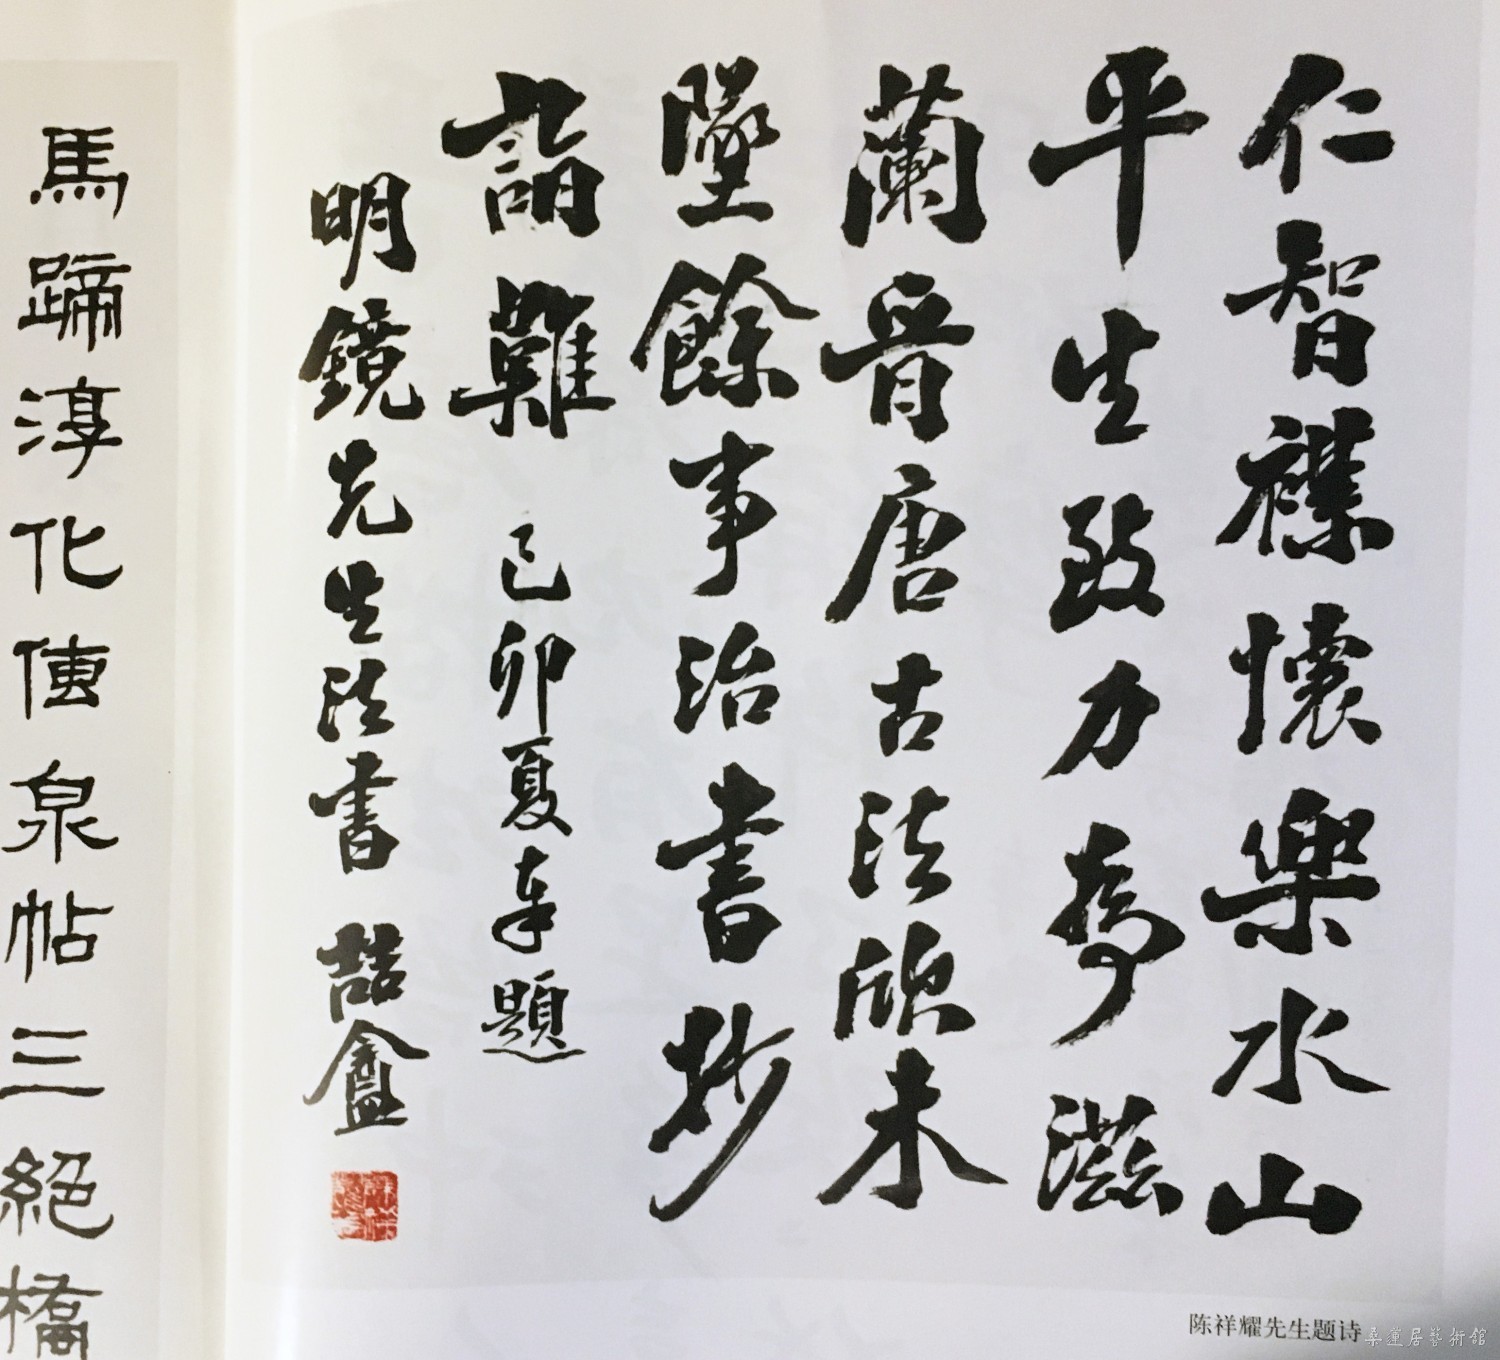 仁智襟懷樂水山
平生致力為滋
蘭晉唐古法欣未
墜餘事治書妙
詣難 己卯夏奉題
明鏡先生法書 喆盦
馬蹄淳化傳泉帖三絕橋
陈祥耀先生题诗
桑蓮居藝術館